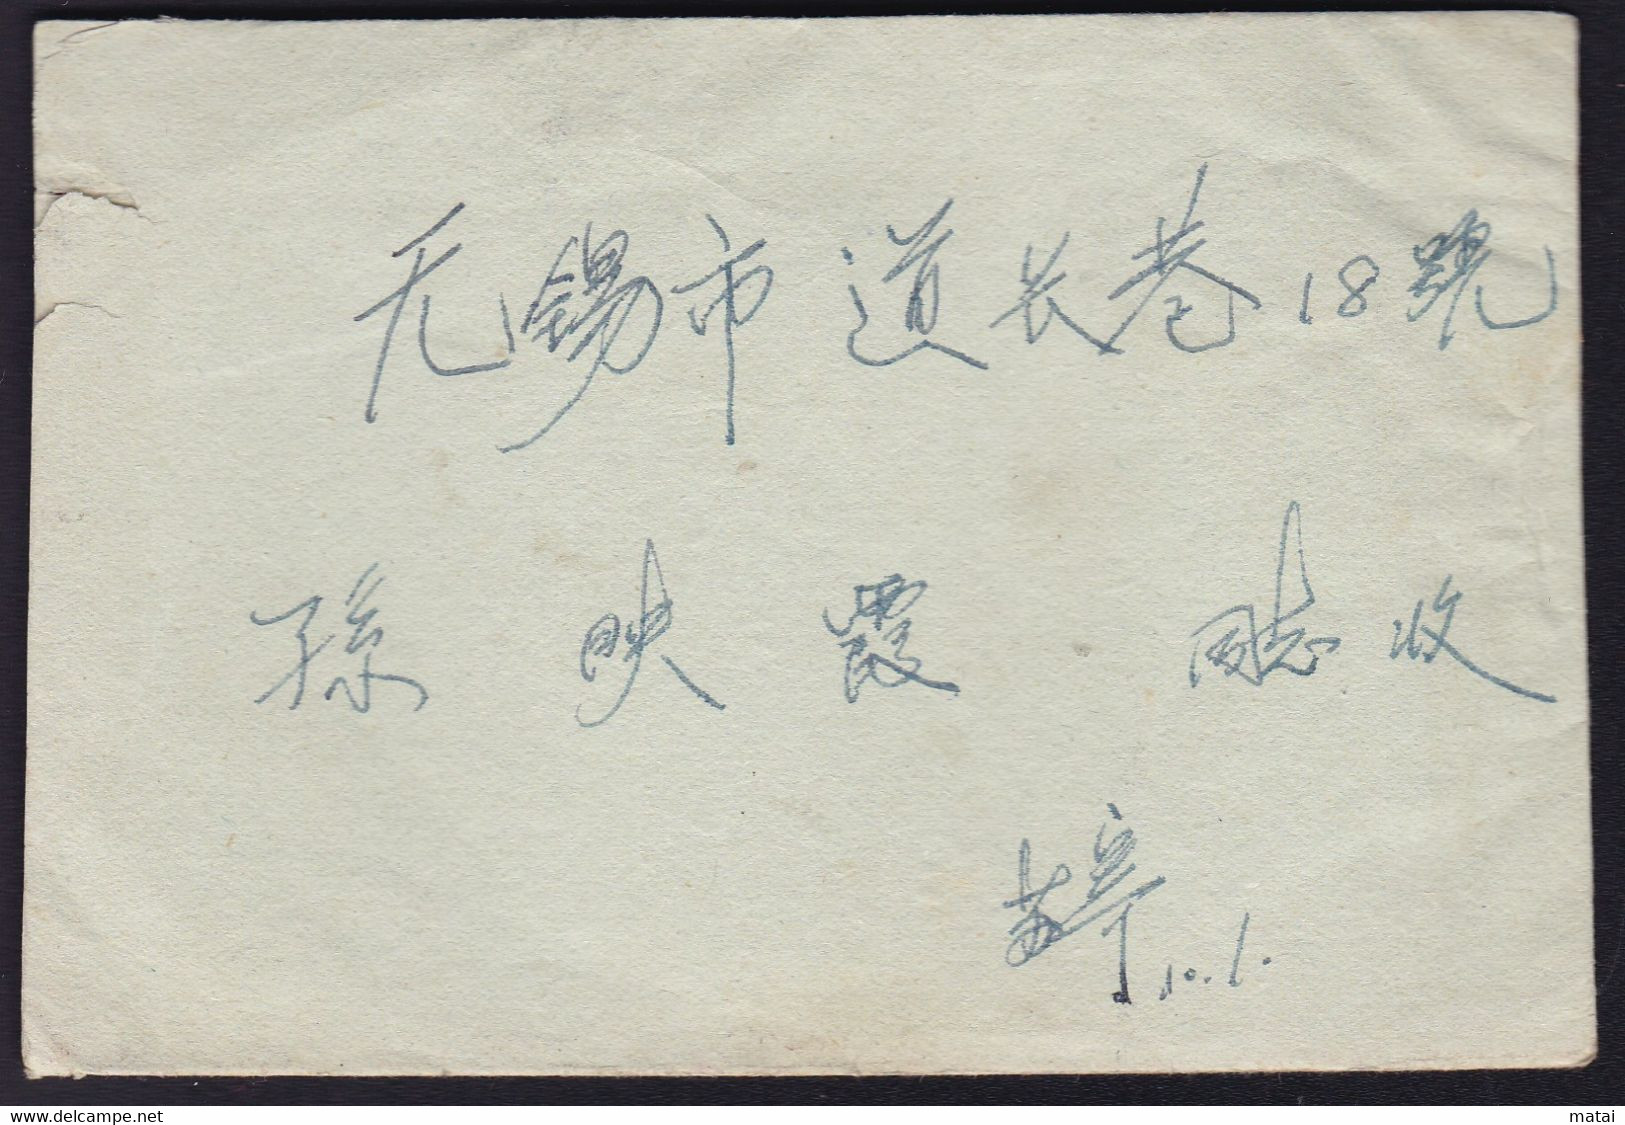 无锡市道长巷18號
孫映霞同志收
10.1.
www.delcampe.net
matai